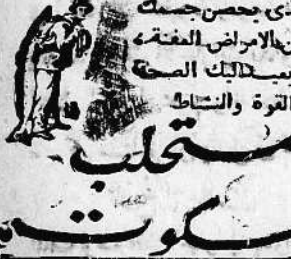 ذى يحصن جسمك
من الامراض العفنة و
يعيد اليك الصحة
القوة والنشاط
مستحلب
سكوت